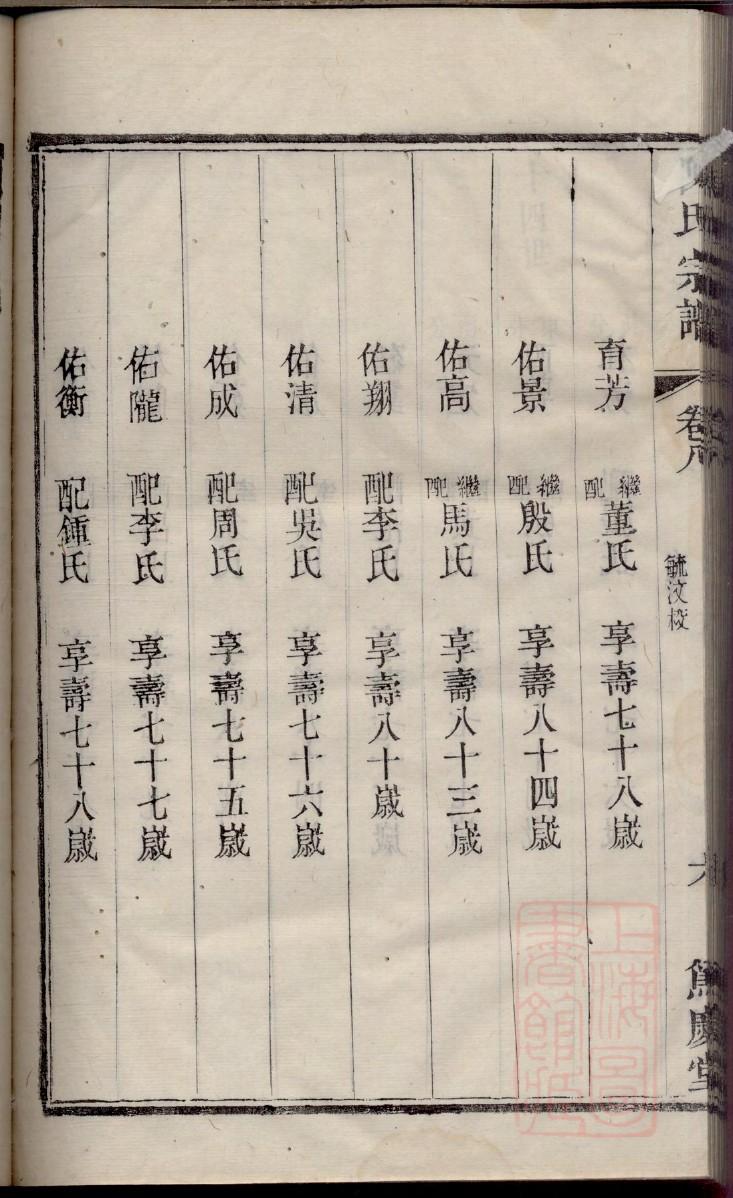 氏宗譜 卷八 毓汶校 六 篤慶堂
育芳 繼配董氏 享壽七十八歲
佑景 繼配殷氏 享壽八十四歲
佑高 繼配馬氏 享壽八十三歲
佑翔 配李氏 享壽八十歲
佑清 配吳氏 享壽七十六歲
佑成 配周氏 享壽七十五歲
佑隴 配李氏 享壽七十七歲
佑衡 配鍾氏 享壽七十八歲
上海圖書館藏